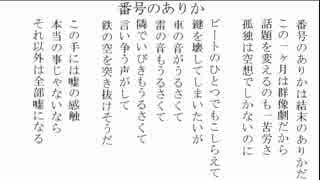 番号のありか
番号のありかは結末のありかだ
この一ヶ月は群像劇だから
話題を変えるのも一苦労さ
孤独は空想でしかないのに
ビートのひとつでもこしらえて
鍵を壊してしまいたいが
車の音がうるさくて
雷の音もうるさくて
隣でいびきもうるさくて
言い争う声がして
鉄の空を突き抜けそうだ
この手には嘘の感触
本当の事じゃないなら
それ以外は全部嘘になる